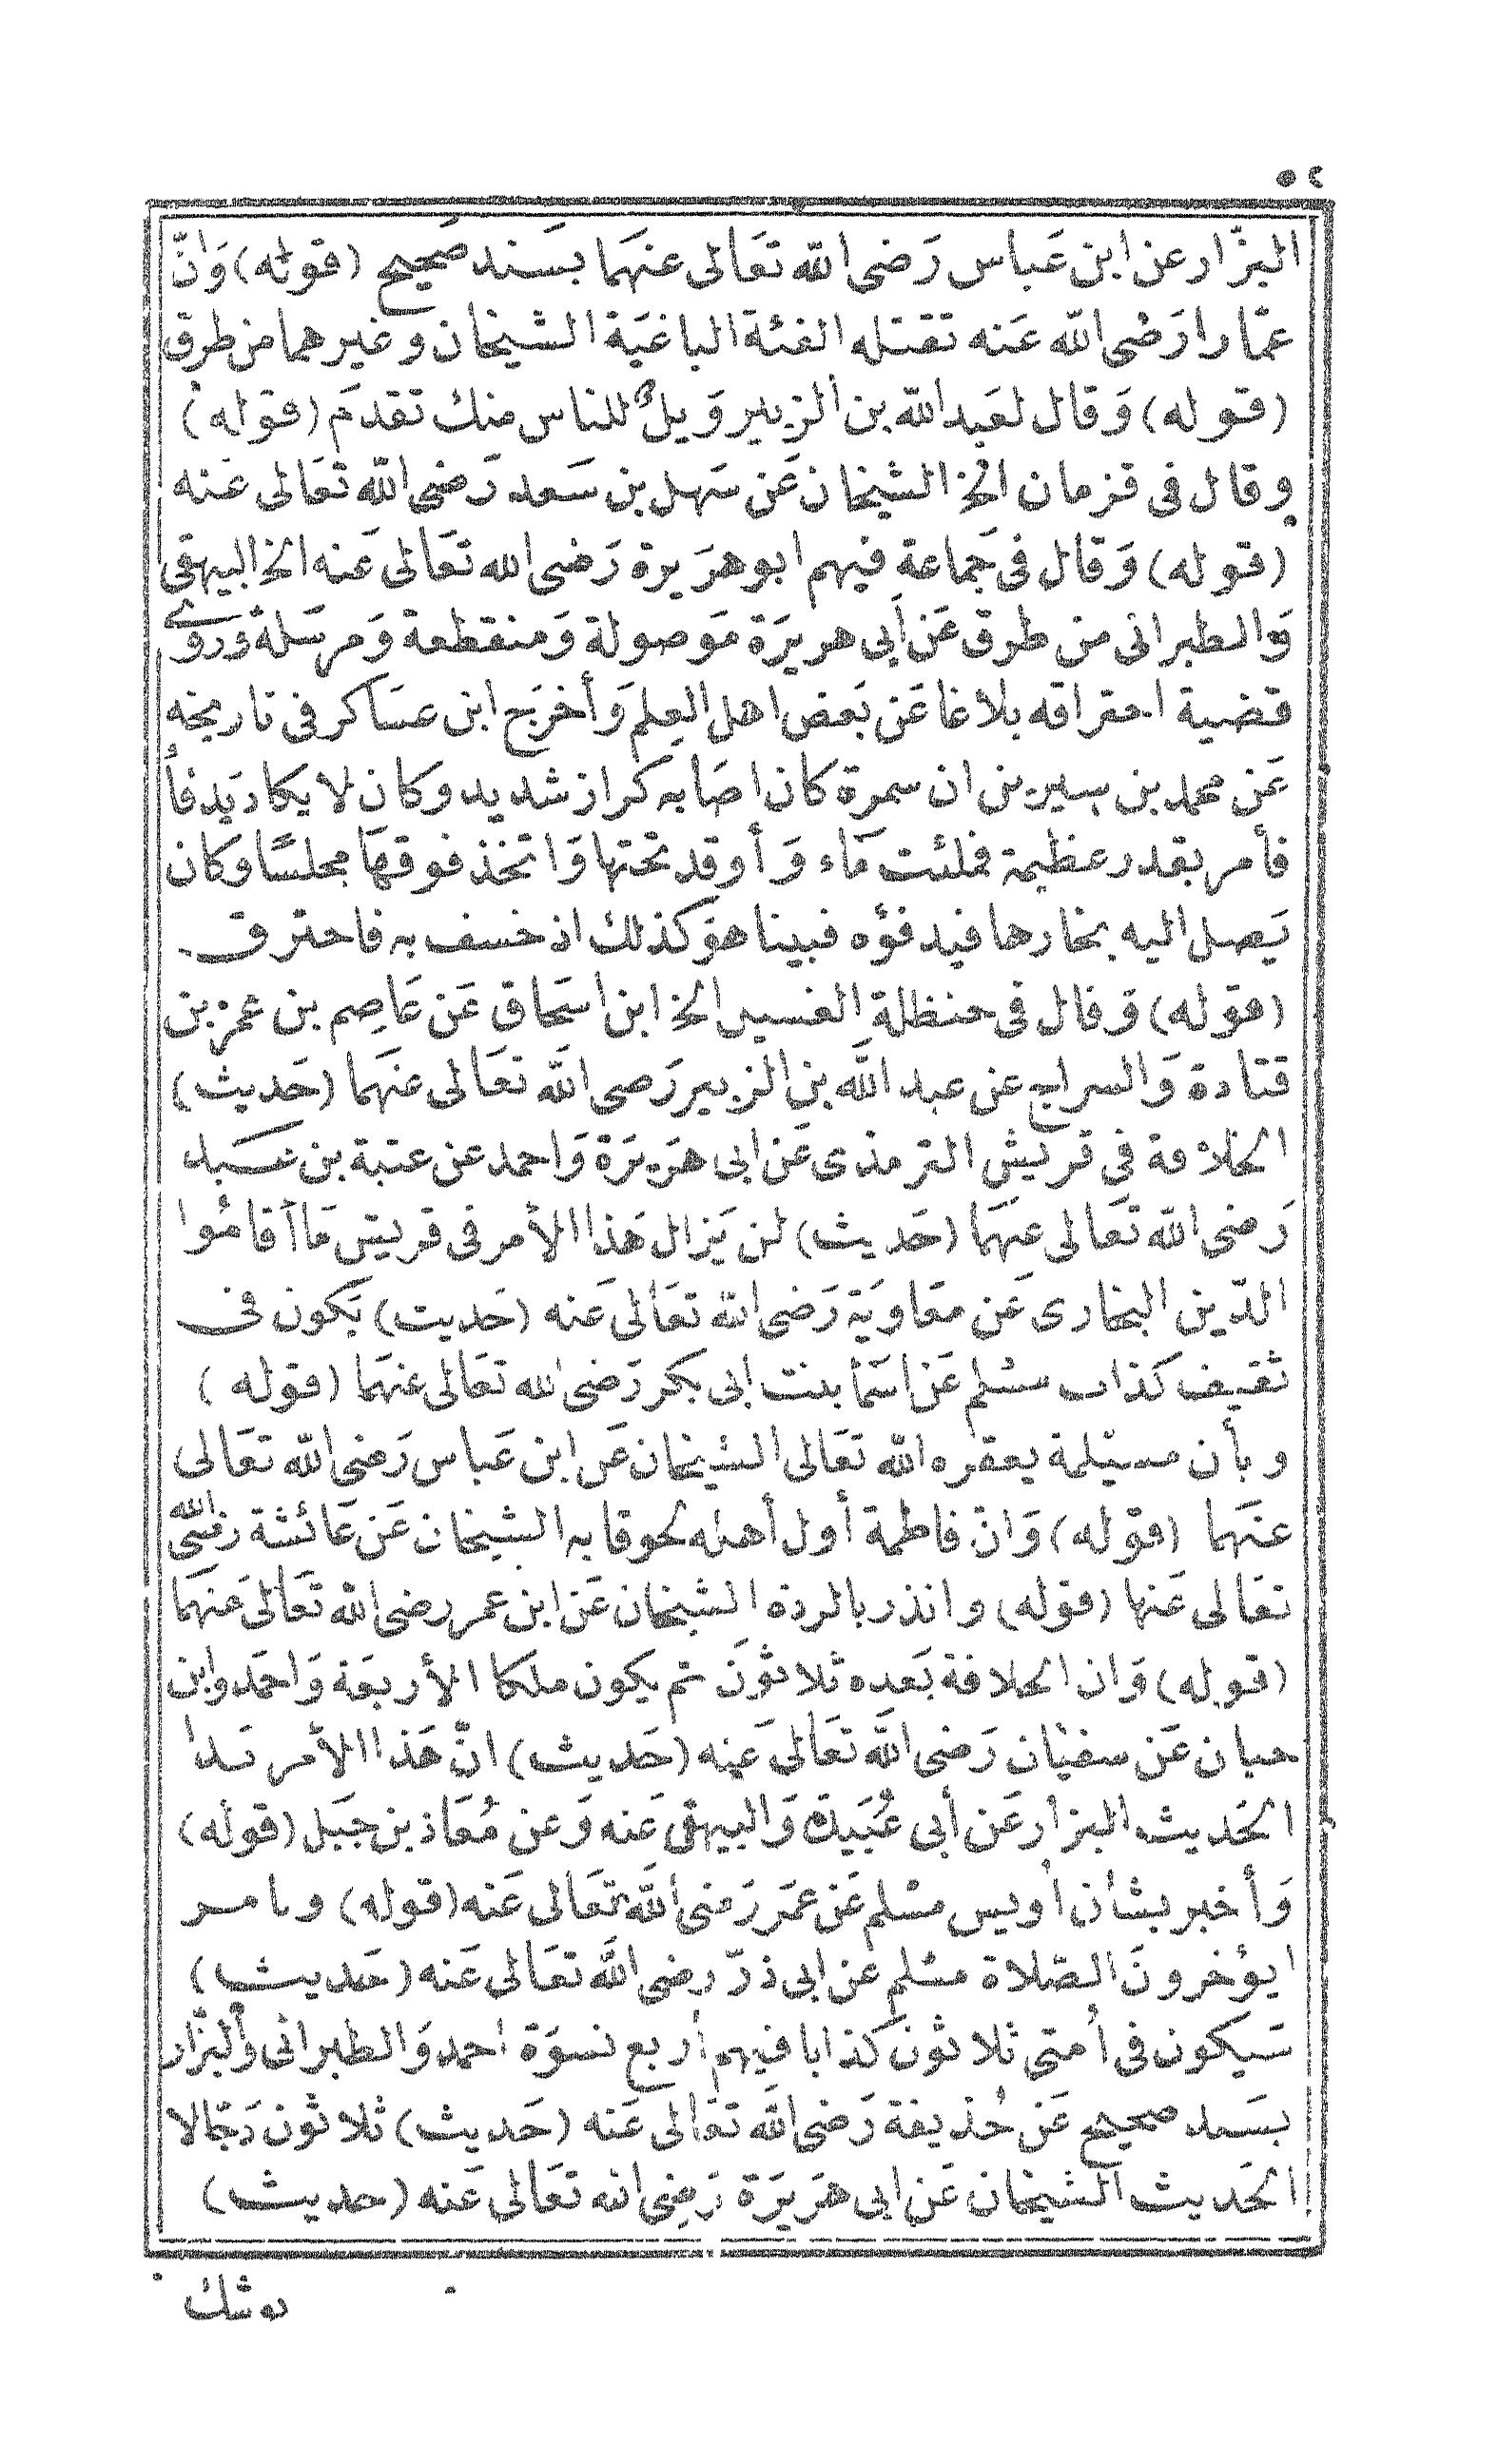 ٥٢
البزّار عن ابن عَباس رَضى الله تعَالى عنهَما بسَند صَحيح (قوله) وَانّ
عمّارا رَضى الله عَنه تقتله الفئة الباغيَة الشيخان وغيرهما من طرق
(قوله) وَقال لعَبد الله بن الزبير وَيلٌ للناس منك تقدمَ (قوله)
وقال فى قزمان الخ الشيخان عَن سَهل بن سَعد رَضى الله تعَالى عَنه
(قوله) وَقال فى جَماعة فيهم ابو هرَيرة رَضى الله تعَالى عَنه الخ البيهقى
وَالطبرانى من طرق عَن أبى هريرَة مَوصولة وَمنقطعة وَمرسَلة وَروى
قضية احتراقه بلاغا عَن بَعض اهل العِلم وَأخرَج ابن عسَاكر فى تاريخه
عَن محمد بن سيرين ان سمرة كان اصَابه كراز شديد وكان لا يكاد يَدفأ
فأمر بقدر عظيمة فملئت مَاء وَأوقد تحتها وَاتخذ فوقهَا مجلسًا وكان
يَصل اليه بخارها فيدفؤه فبينا هوَ كذلك اذ خسف به فاحترق
(قوله) وَقال فى حنظلة الغسيل الخ ابن اسحَاق عَن عَاصِم بن عمر بن
قتادة وَالسراج عن عبد الله بن الزبير رَضى الله تعَالى عنهَما (حَديث)
الخلافة فى قريش الترمذى عَن ابى هرَيرَة وَاحمد عن عتبة بن عَبد
رَضى الله تعَالى عنهَما (حَديث) لن يَزال هَذا الأمر فى قريش مَا أقامُوا
الدّين البخارى عَن معَاويَة رَضى الله تعَالى عَنه (حَديث) يَكون فى
ثقيف كذاب مسْلم عَن اسَمأ بنت ابى بكر رَضى الله تعَالى عنهَما (قوله)
وبأن مسَيْلمة يعقره الله تعَالى الشيخان عَن ابن عَباس رَضى الله تعَالى
عنهَما (قوله) وَانّ فاطمة أول أهله لحوقا به الشيخان عَن عَائشة رضى الله
تعَالى عَنها (قوله) وانذر بالردة الشيخان عَن ابن عمر رضى الله تعَالى عَنهَما
(قوله) وَان الخلافة بَعده ثلاثونَ ثم يكون ملكا الأربعَة وَاحمَد وابن
حبان عَن سفيْان رَضى الله تعَالى عَنه (حَديث) انّ هَذا الأمر بَدا
الحَديث البزار عَن أبى عُبَيدة وَالبيهقى عَنه وَعن مُعَاذ بن جبَل (قوله)
وَأخبر بشأن أويس مسْلم عَن عمَر رَضى الله تعَالى عَنه (قوله) وبامر
ايؤخرونَ الصّلاة مسْلم عَن ابى ذرّ رضى الله تعَالى عَنه (حَديث)
سَيكون فى أمتى ثلاثون كذابا فيهم أربع نسوَة احمد وَالطبرانى وَالبزّار
بسَند صحيح عَن حُذيفة رَضى الله تعَالى عَنه (حَديث) ثلاثون دَجّالا
الحَديث الشيخان عَن ابى هرَيرَة رَضِى الله تعَالى عَنه (حديث)
يوشك